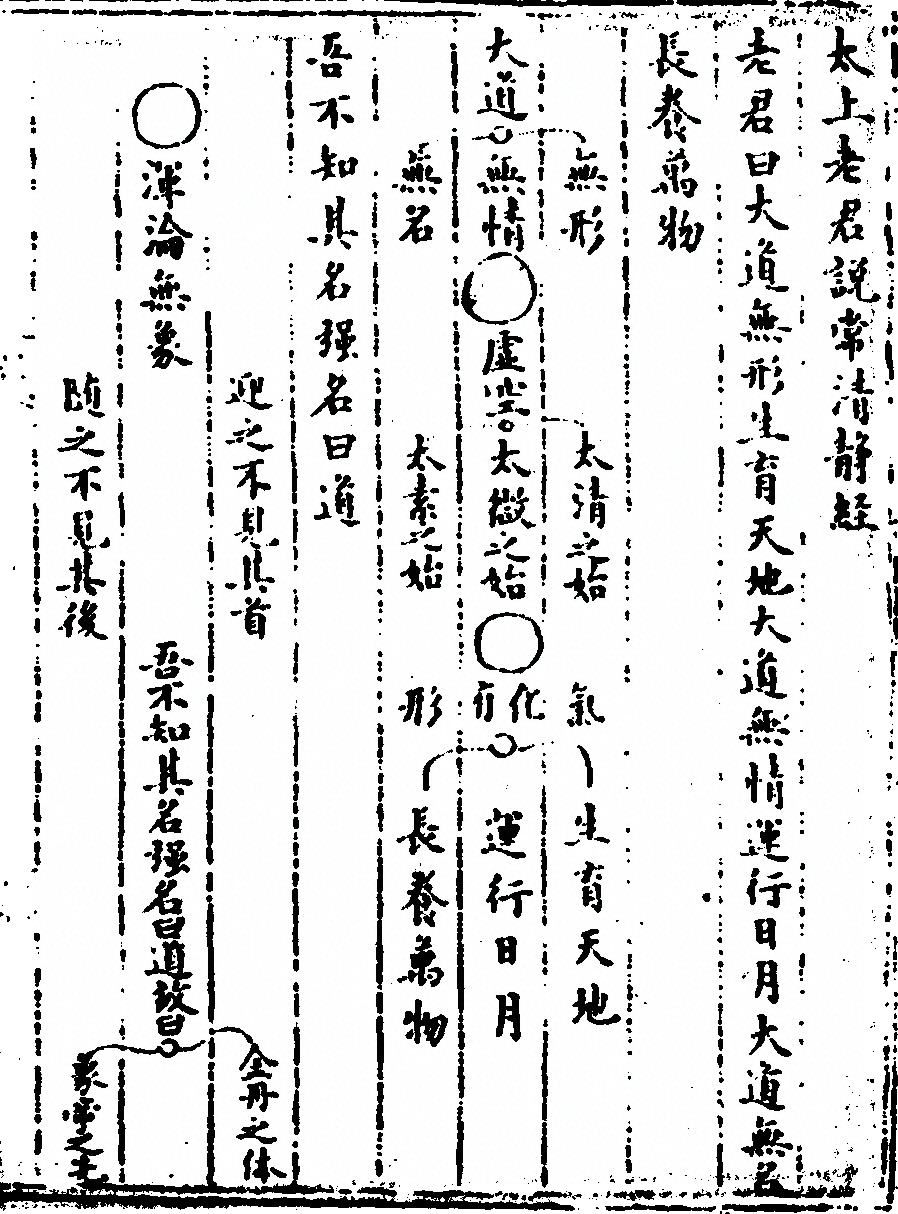 太上老君說常清靜經
老君曰大道無形生育天地大道無情運行日月大道無名
長養萬物
無形
大道無情
無名
太清之始
虛空太微之始
太素之始
氣
化有
形
生育天地
運行日月
長養萬物
吾不知其名强名曰道
迎之不見其首
渾淪無象
隨之不見其後
吾不知其名强名曰道故曰
全丹之体
象帝之先